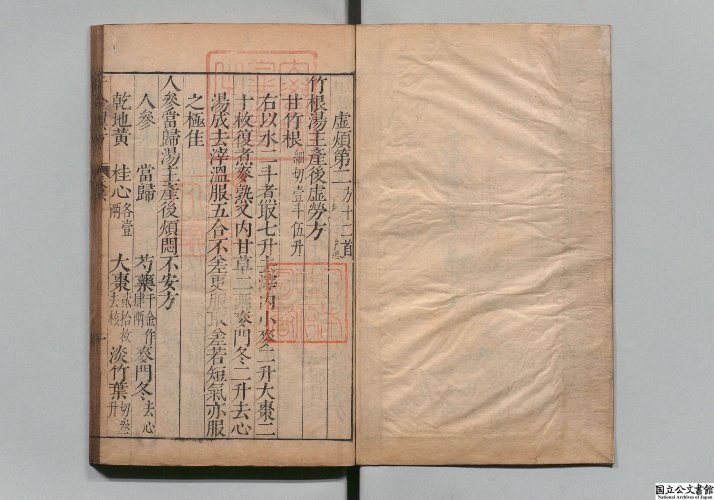 虛煩第二方十二首
竹根湯主產後虛勞方
甘竹根細切壹斗伍升
右以水二斗煮取七升去滓內小麥二升大棗二
十枚復煮麥熟又內甘草二兩麥門冬二升去心
湯成去滓溫服五合不差更服取差若短氣亦服
之極佳
人參當歸湯主產後煩悶不安方
人參 當歸 芍藥千金作肆兩 麥門冬去心
乾地黃 桂心各壹兩 大棗貳拾枚去核 淡竹葉切叁升
国立公文書館
National Archives of Japan